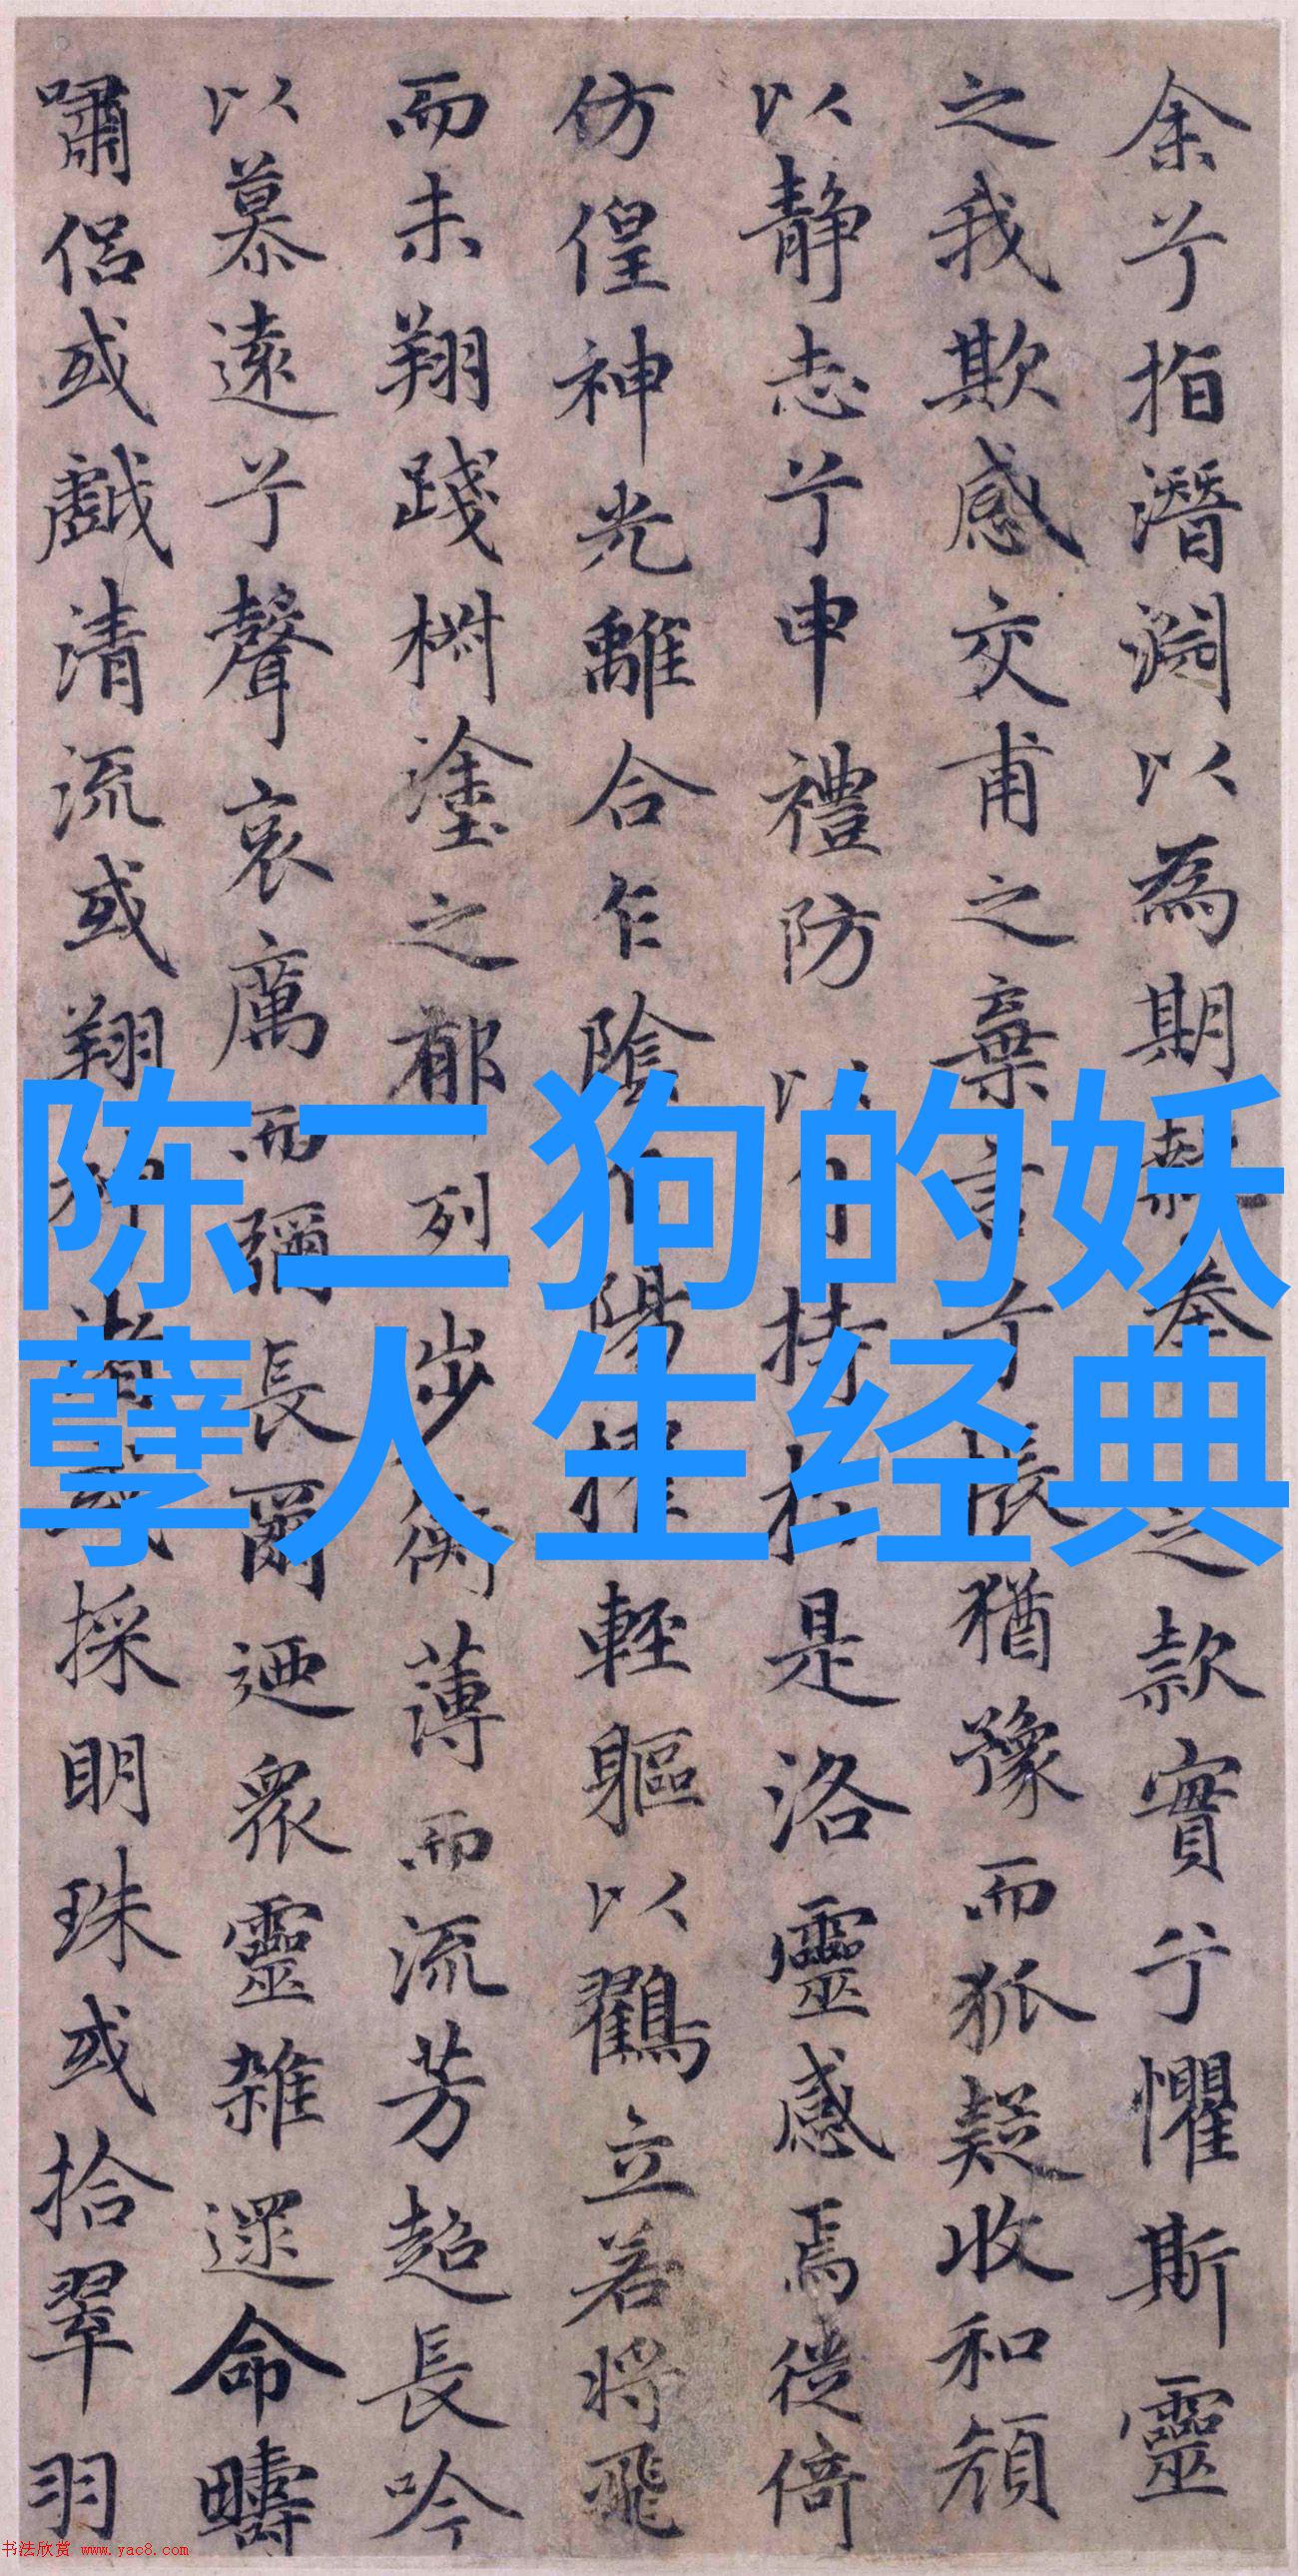 余兮指潛淵以為期之款實兮懼斯靈
之我欺感交甫之棄言兮悵猶豫而狐疑收和顏
以靜志兮申禮防以持於是洛靈感焉徙倚
仿偟神光離合乍陰陽擢輕軀以鶴立若將飛
而未翔踐椒塗之郁列步衡薄而流芳超長吟
以慕遠兮聲哀厲而彌長爾迺眾靈雜遝命疇
嘯侶或戲清流或翔神渚或採明珠或拾翠羽
陈二狗的妖
孽人生经典
书法欣赏 www.yac8.com